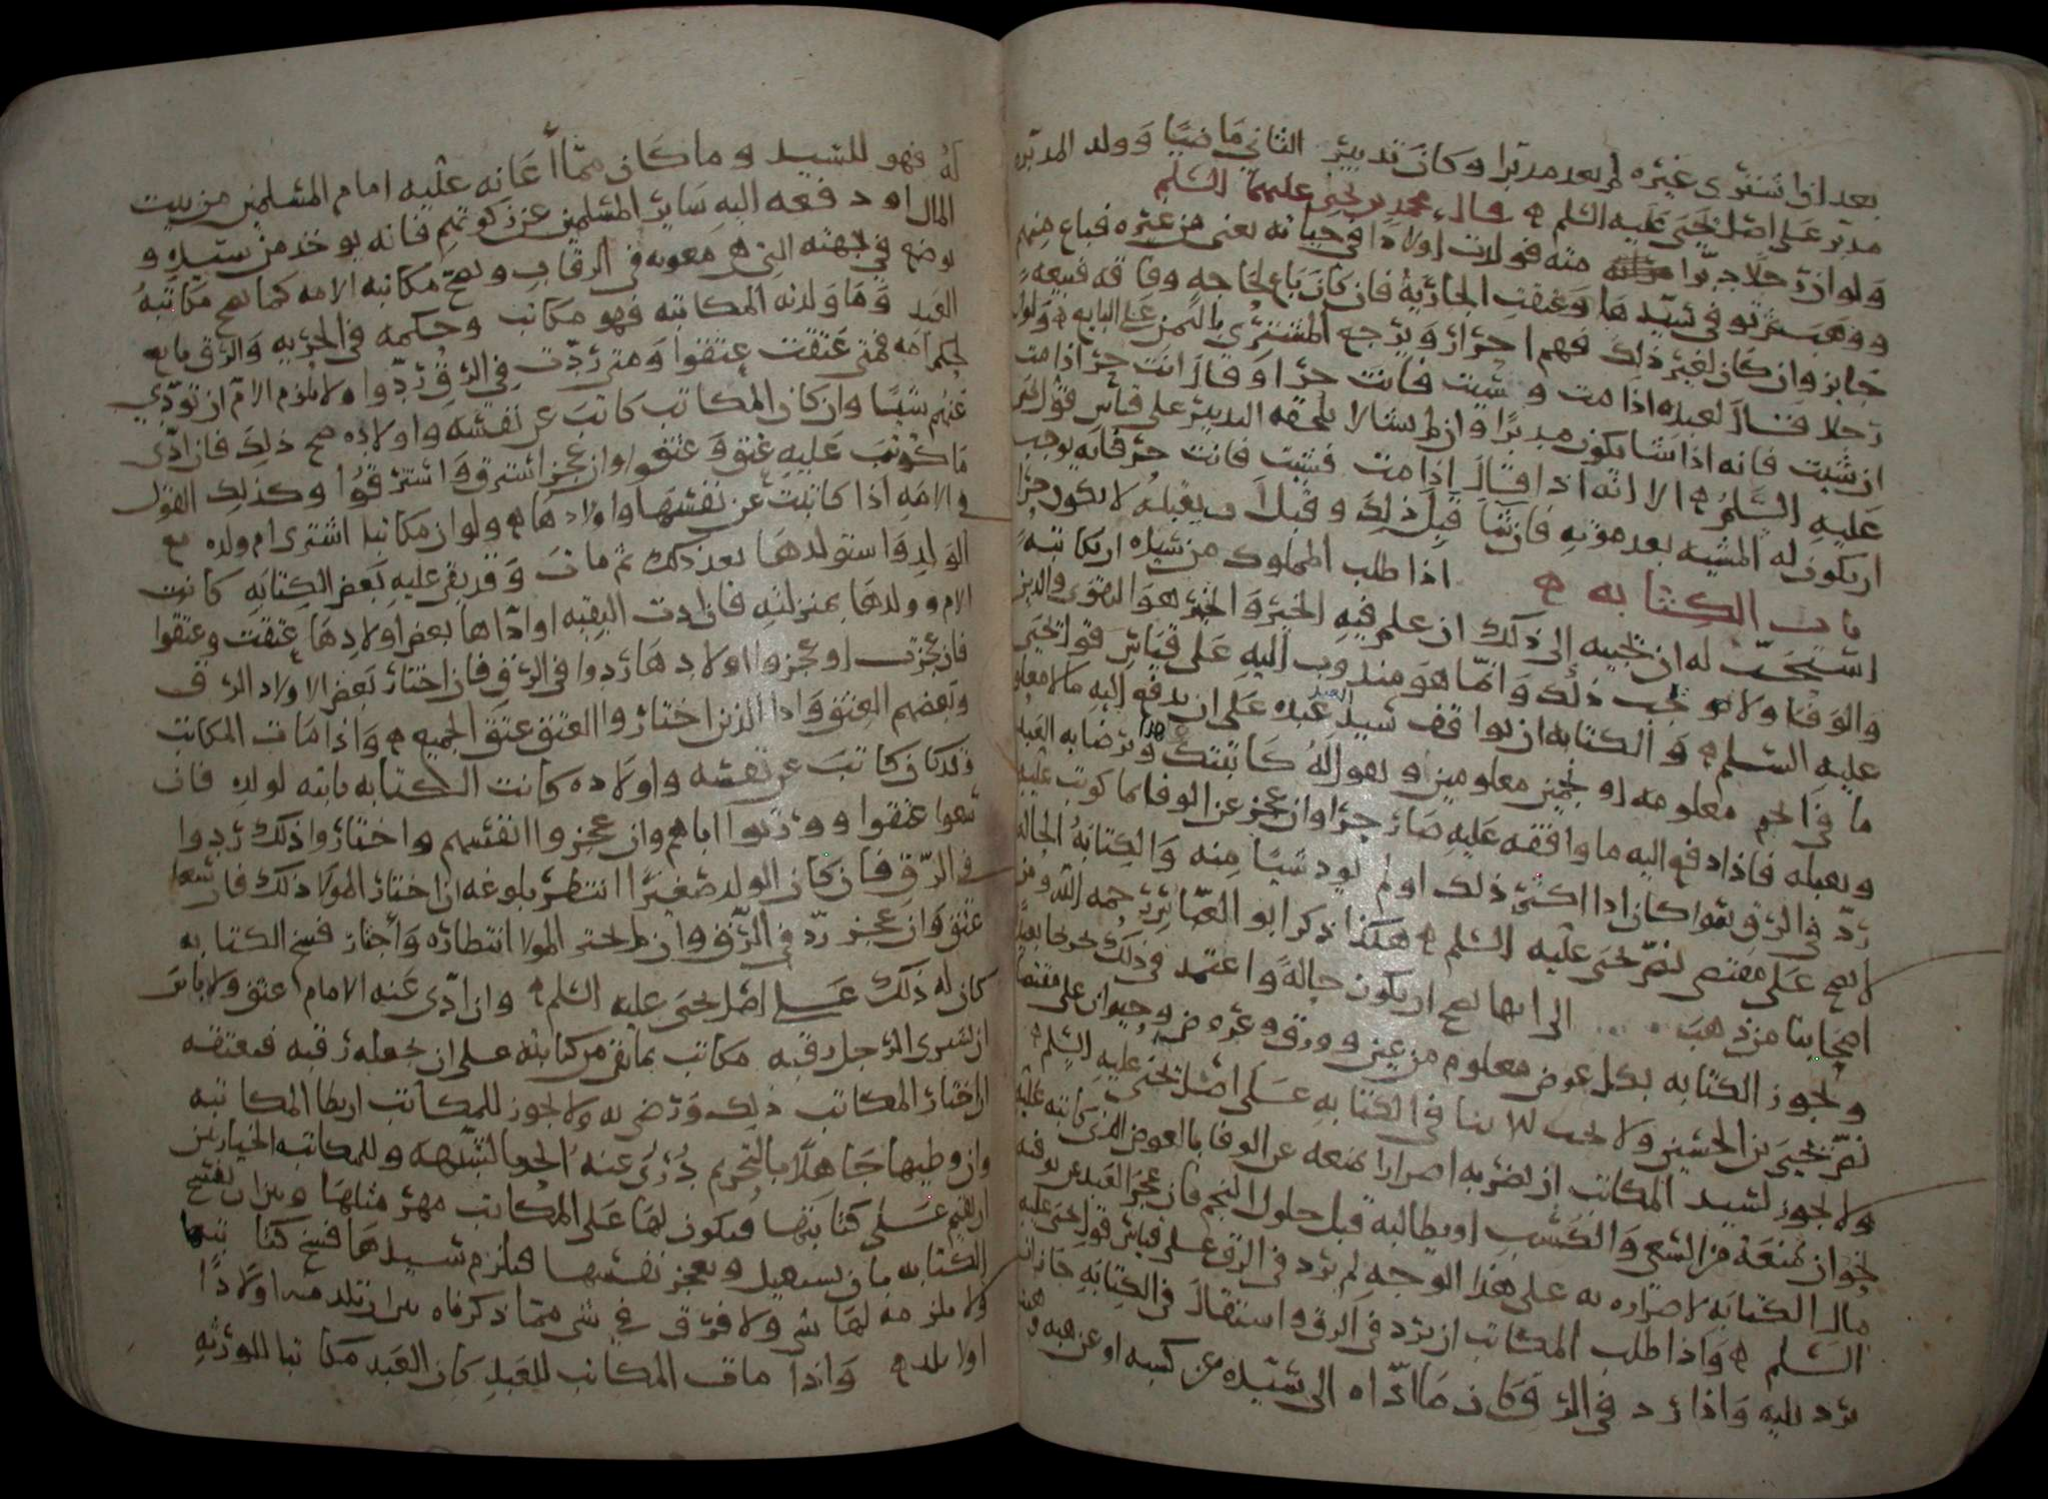 بعد ان اشترى غيره لم يعد مدبرا وكان تدبير الثاني ماضيا وولد المدبره
مدبر على اصل يحيى عليه السلم قال محمد بن يحيى عليهما السلم
ولو ان رجلا دبر منه فولدت اولادا في حياته يعني من غيره فباع منهم
ووهب ثم توفي سيدها وعتقت الجارية فان كان باع لحاجه وفاقه فبيعه
جايز وان كان لغير ذلك فهم احرار ويرجع المشتري بالثمن على البايع ولو ان
رجلا قال لعبده اذا مت و شيت فانت حر او قال انت حر اذا مت
ان شيت فانه اذا شا يكون مدبرا وان لم يشا لا يلحقه التدبير على قياس قول يحيى
عليه السلم الا انه اذا قال اذا مت فشيت فانت حر فانه يوجب
ان يكون له المشيه بعد موته فان شا قبل ذلك و قبل لا يكون حرا
باب الكتابه اذا طلب المملوك من سيده ان يكاتبه
استحب له ان يجيبه الى ذلك ان علم فيه الخير والخير هو التقوى والدين
والوفا ولا يجب ذلك وانما هو مندوب اليه على قياس قول يحيى
عليه السلم والكتابه ان يواقف سيد العبد عبده على ان يدفع اليه مالا معلو
ما في نجم معلومه او نجمين معلومين او يقول له كاتبتك هذا ويرضا به العبد
ويقبله فاذا دفع اليه ما وافقه عليه صار حرا وان عجز عن الوفا بما كوتب عليه
رد في الرق سوا كان ادا اكثر ذلك او لم يود شيا منه والكتابة الحاله
لا تصح على مقتضى نص يحيى عليه السلم هكذا ذكر ابو العباس رحمه الله ومن
اصحابنا من ذهب الى انها تصح ان يكون حالة واعتمد في ذلك
وتجوز الكتابه بكل عوض معلوم من عين وورق وعروض وحيوان على مقتضا
نص يحيى بن الحسين ولا يجب الابتا في الكتابه على اصل يحيى عليه السلم
ولا يجوز لسيد المكاتب ان يضر به اضرارا يمنعه عن الوفا بالعوض الذي كاتبه عليه
نحو ان يمنعه من السعي والكسب او يطالبه قبل حلول النجم فان عجز العبد عن توفيه
مال الكتابه لاضراره به على هذا الوجه لم يرد في الرق على قياس قول يحيى عليه
السلم واذا طلب المكاتب ان يرد في الرق واستقال في الكتابه جاز ان
يرد اليه واذا رد في الرق وكان ما اداه الى سيده من كسبه او عن هبه وهبت
له فهو للسيد وما كان مما اعانه عليه امام المسلمين من بيت
المال او دفعه اليه ساير المسلمين عن زكوتهم فانه يوخذ من سيده و
يوضع في جهته التي هي معونه في الرقاب وتصح مكاتبه الامه كما تصح مكاتبة
العبد وما ولدته المكاتبه فهو مكاتب وحكمه في الحريه والرق تابع
لحكم امه فمتى عتقت عتقوا ومتى ردت في الرق ردوا ولا يلزم الام ان تودي
عنهم شيا وان كان المكاتب كاتب عن نفسه واولاده صح ذلك فان ادى
ما كوتب عليه عتق وعتقوا وان عجز استرق واسترقوا وكذلك القول
في الامه اذا كاتبت عن نفسها واولادها ولو ان مكاتبا اشترى ام ولده مع
الولد واستولدها بعد ذلك ثم مات وقد بقي عليه بعض الكتابه كانت
الام وولدها بمنزلته فان ادت البقيه او اداها بعض اولادها عتقت وعتقوا
فان عجزت او عجزوا اولادها ردوا في الرق فان اختار بعض الاولاد الرق
وبعضهم العتق وادا الذين اختاروا العتق عتق الجميع واذا مات المكاتب
وقد كان كاتب عن نفسه واولاده كانت الكتابه ثابته لولده فان
سعوا عتقوا وورثوا اباهم وان عجزوا انفسهم واختاروا ذلك ردوا
في الرق فان كان الولد صغيرا انتظر بلوغه ان اختار المولا ذلك فان سعا
عتق وان عجز رد في الرق وان لم يختر المولا انتظاره واختار فسخ الكتابه
كان له ذلك على اصل يحيى عليه السلم وان ادى عنه الامام عتق ولا باس
ان يشترى الرجل رقبه مكاتب بما بقي من كتابته على ان يجعله رقبه فيعتقه
ان اختار المكاتب ذلك ورضي به ولا يجوز للمكاتب ان يطا المكاتبه
وان وطيها جاهلا بالتحريم درى عنه الحد للشبهه وللمكاتبه الخيار بين
ان تقيم على كتابتها فيكون لها على المكاتب مهر مثلها وبين ان تفسخ
الكتابه بان تستقيل وتعجز نفسها فيلزم سيدها فسخ كتابتها
ولا يلزمه لها شي ولا فرق في شي مما ذكرناه بين ان تلد منه اولادا
او لا تلد واذا مات المكاتب للعبد كان العبد مكاتبا للورثه